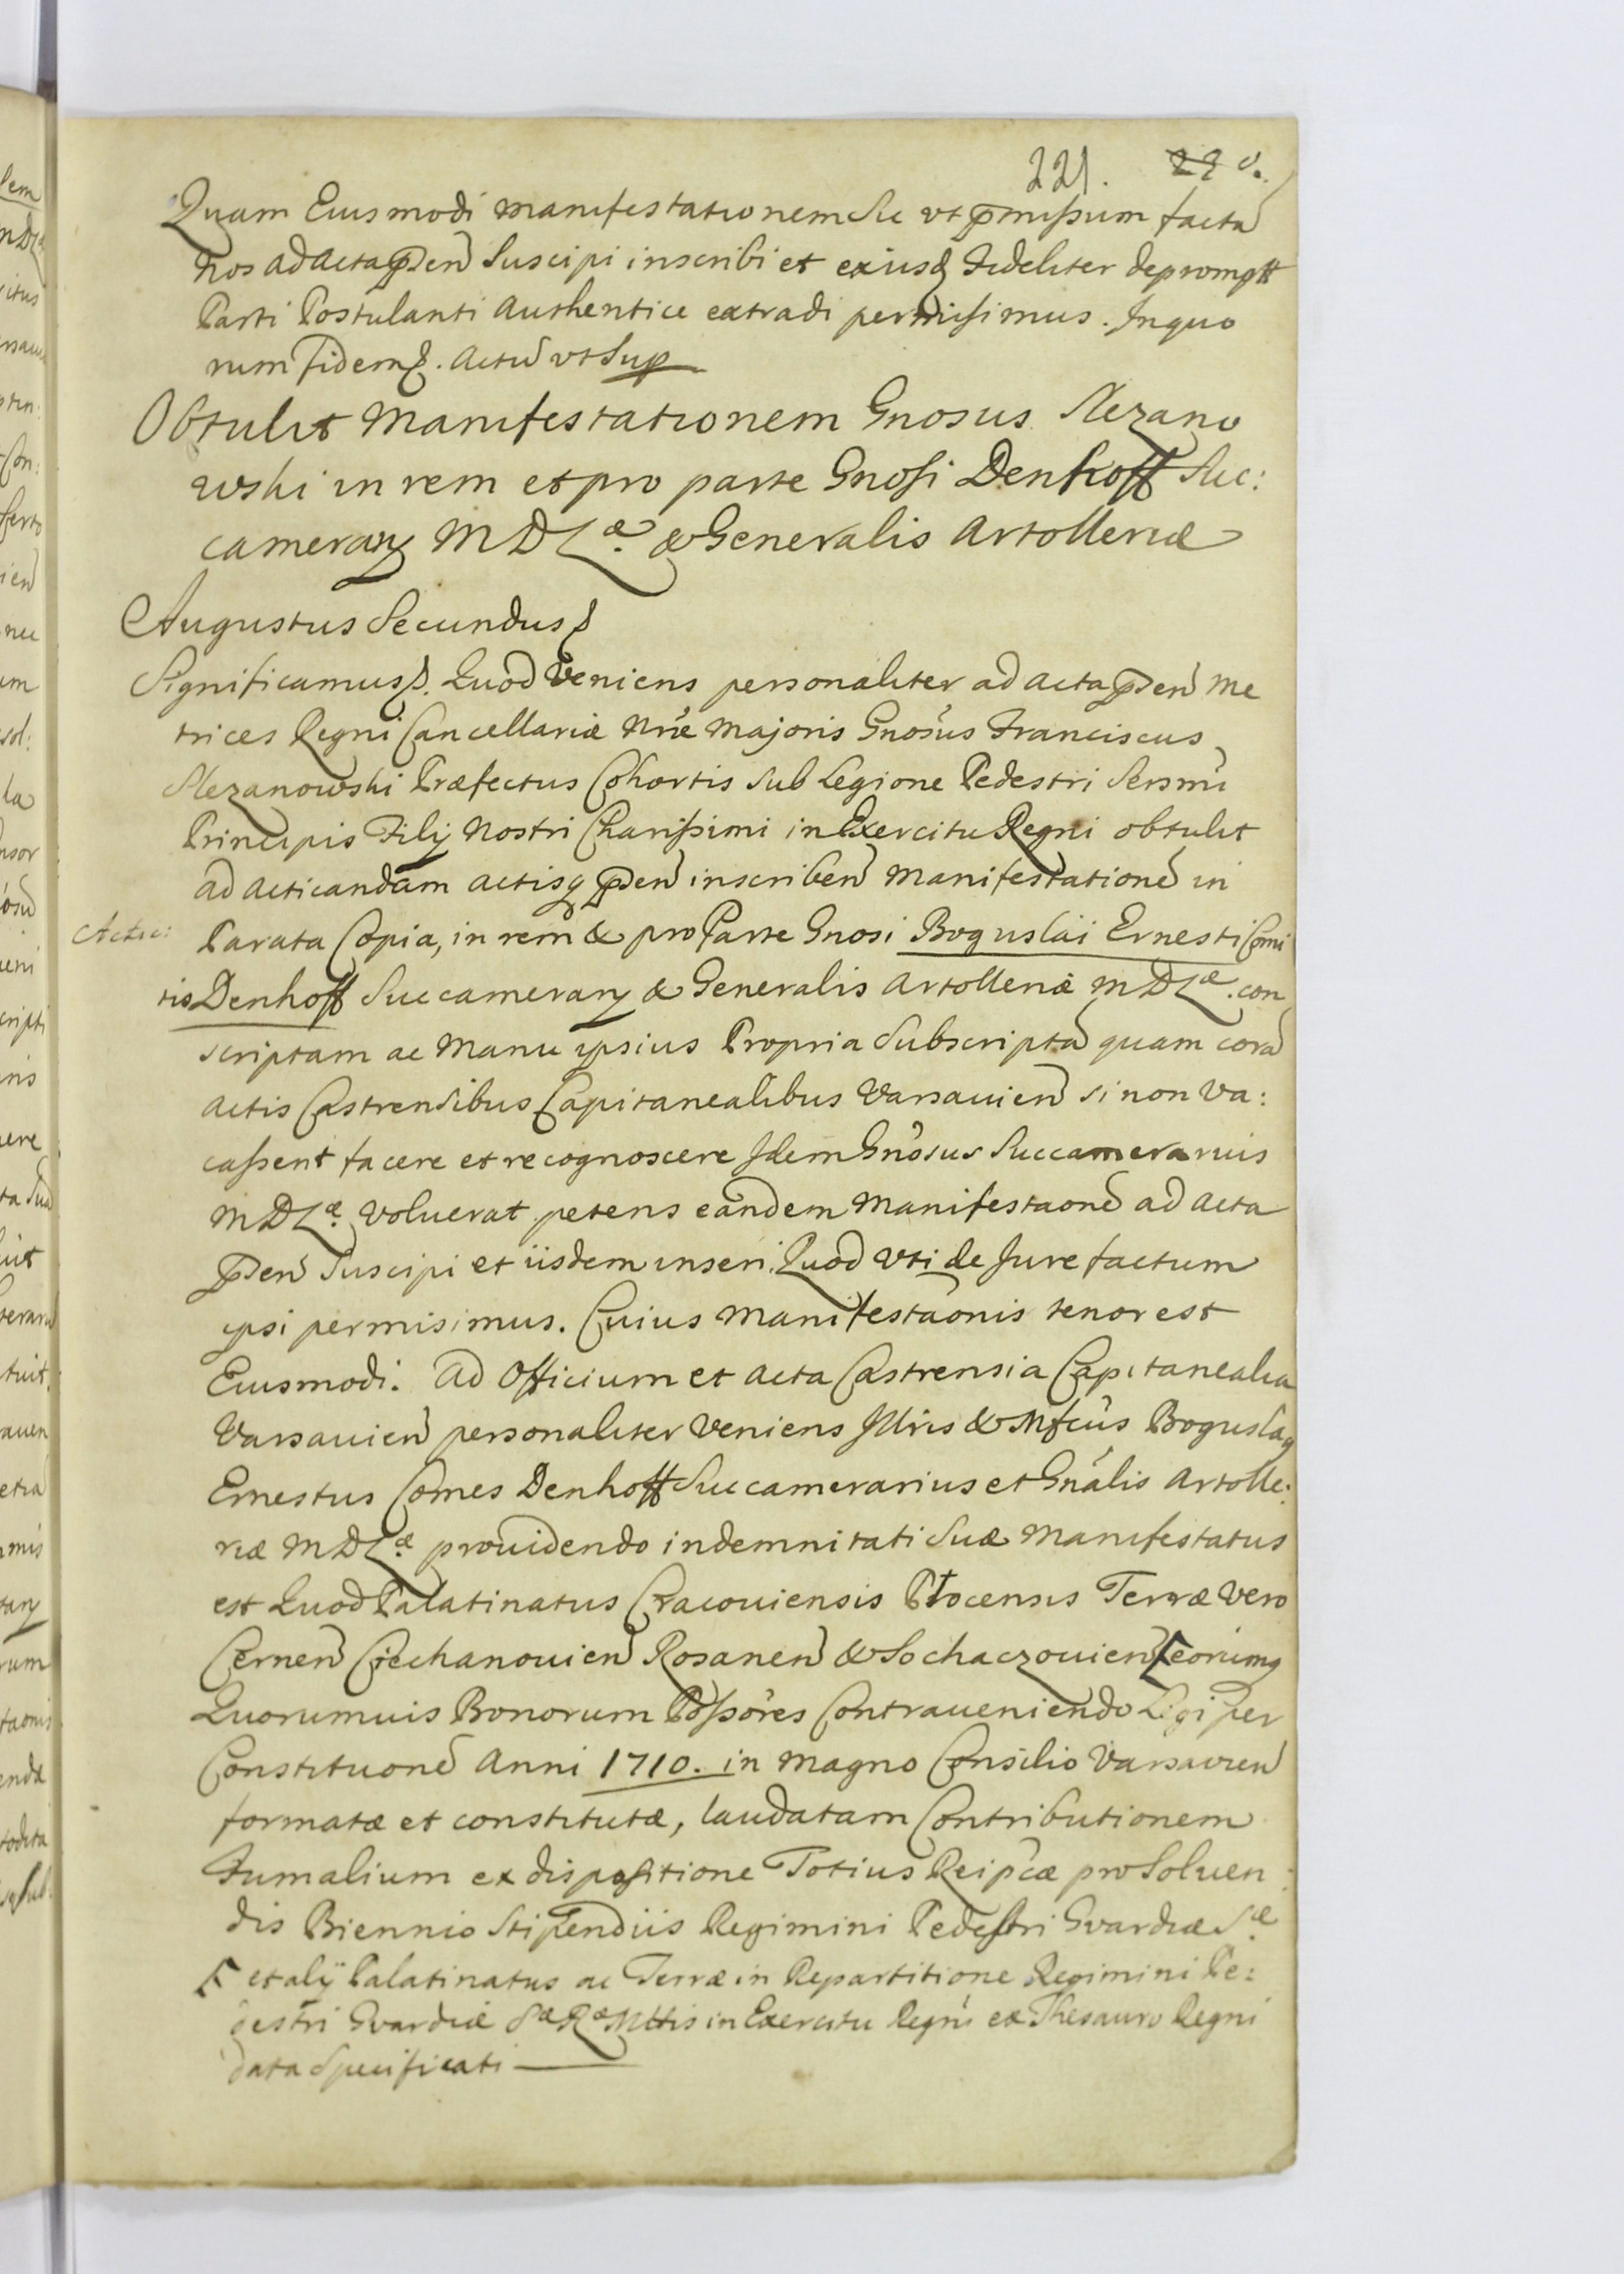 221. 220.
Quam Eiusmodi manifestationem Sic vt pmissum factã
nos ad acta psen Suscipi inscribi et exiusd fideliter deprompt
Parti Postulanti Authentice extradi permisimus. In quo
rum fidem. Actũ vt Sup
Obtulit Manifestationem Gnosus Slezano
wski in rem et pro parte Gnosi Denhoff Suc:
camerarÿ MDLæ. & Generalis Artolleriæ
Augustus Secundus
Significamus. Quod Veniens personaliter ad acta psen Me
trices Regni Cancellariæ Nræ Majoris Gnosus Franciscus
Slezanowski Præfectus Cohortis Sub Legione Pedestri Sersmi
Principis Filÿ Nostri Charissimi in Exercitu Regni obtulit
ad acticandam actisq psen inscriben Manifestationẽ in
Actic: Parata Copia, in rem & pro Parte Gnosi Boguslai Ernesti Comi
tis Denhoff Succamerarÿ & Generalis Artolleriæ MDLæ. con
scriptam ac Manu ipsius Propria Subscriptã quam corã
Actis Castrensibus Capitanealibus Varsavien si non Va:
cassent facere et recognoscere Idem Gnosus Succamerarius
MDLæ. Voluerat petens eandem Manifestaonẽ ad acta
psen Suscipi et iisdem inseri. Quod vti de Jure factum
ipsi permisimus. Cuius Manifestaonis tenor est
Eiusmodi. Ad Officium et Acta Castrensia Capitanealia
Varsavien personaliter Veniens Illris & Mfcus Boguslaq
Ernestus Comes Denhoff Succamerarius et Gnalis Artolle:
riæ MDLæ. prouidendo indemnitati Suæ Manifestatus
est Quod Palatinatus Cracouiensis Plocensis Terræ Vero
Cernen Ciechanouien Rosanen & Sochaczouien eorumq
Quorumuis Bonorum Possores Contraueniendo Legi per
Constitutionẽ Anni 1710. in Magno Consilio Varsavien
formatæ et constitutæ, laudatam Contributionem
Fumalium ex dispositione Totius Reipcæ pro Soluen:
dis Biennio Stipendiis Regimini Pedestri Gvardiæ Sæ.
et alÿ Palatinatus ac Terræ in Repartitione Regimini Pe:
destri Gvardiæ Sæ Ræ Mttis in Exercitu Regni ex Thesauro Regni
data Specificati